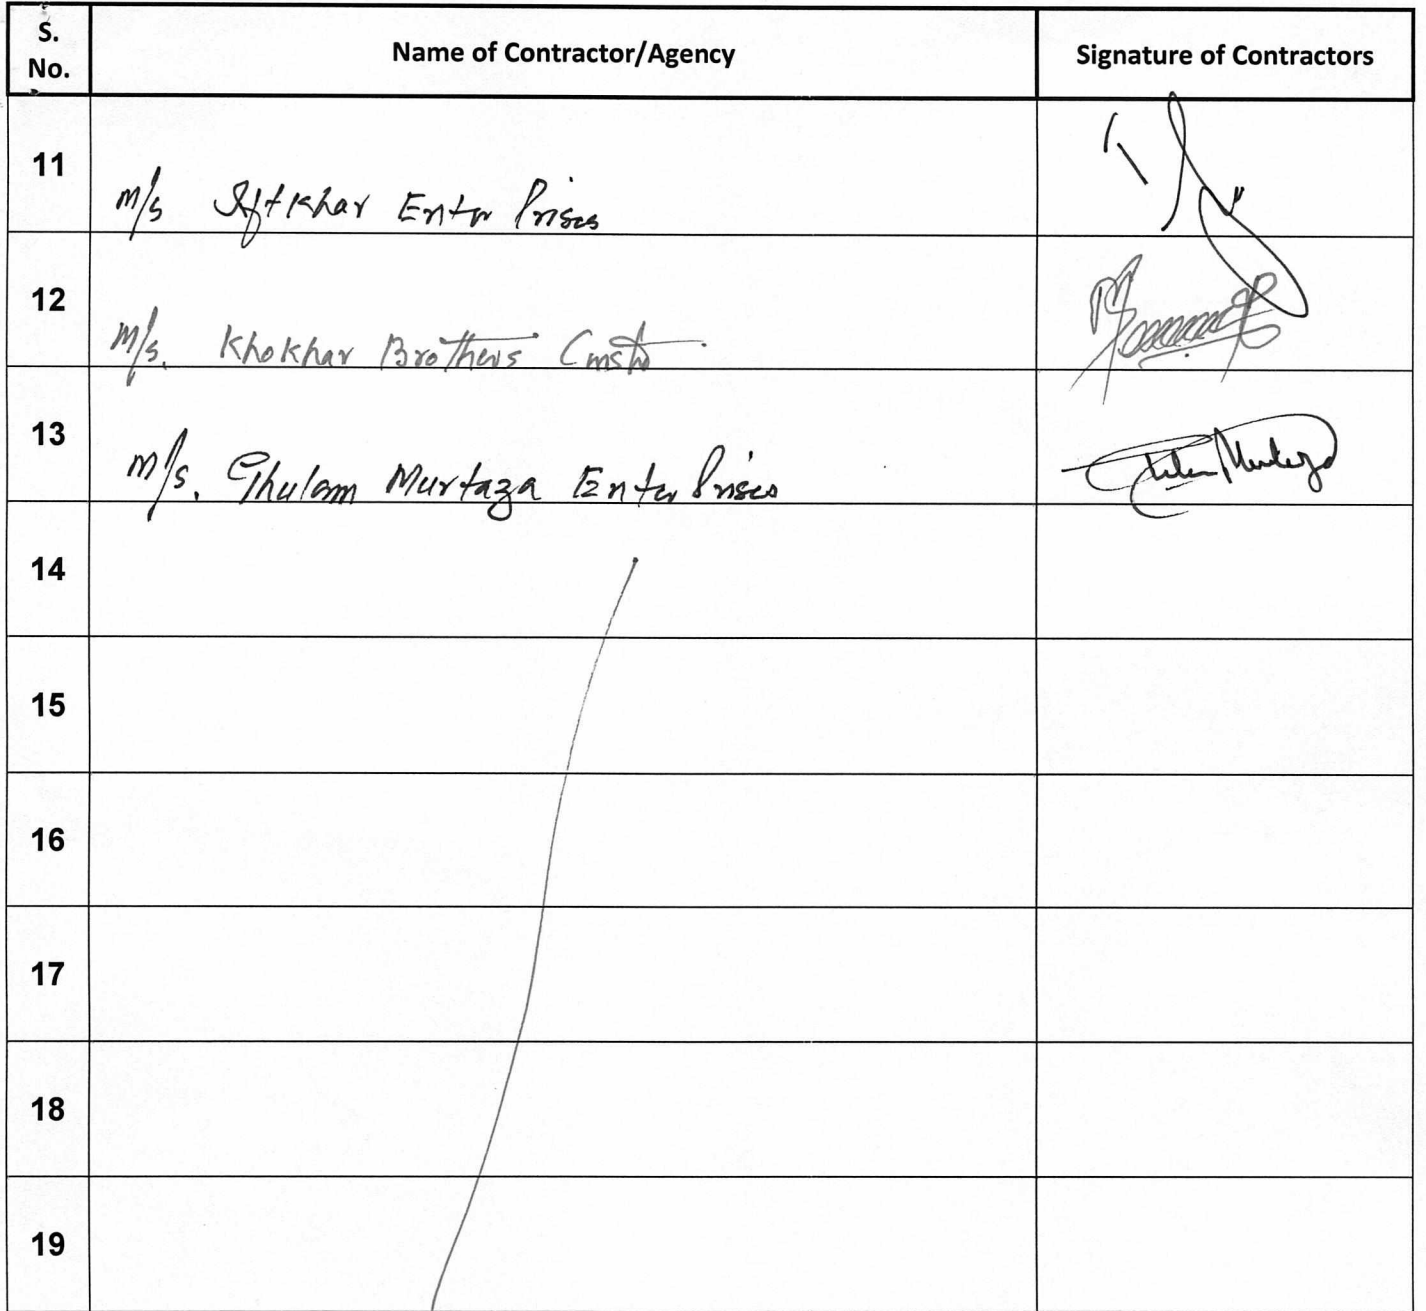 S. No. Name of Contractor/Agency Signature of Contractors
11 M/s Iftkhar Enter Prises
12 M/s. Khokhar Brothers Const
13 M/s. Ghulam Murtaza Enter Prises
14
15
16
17
18
19